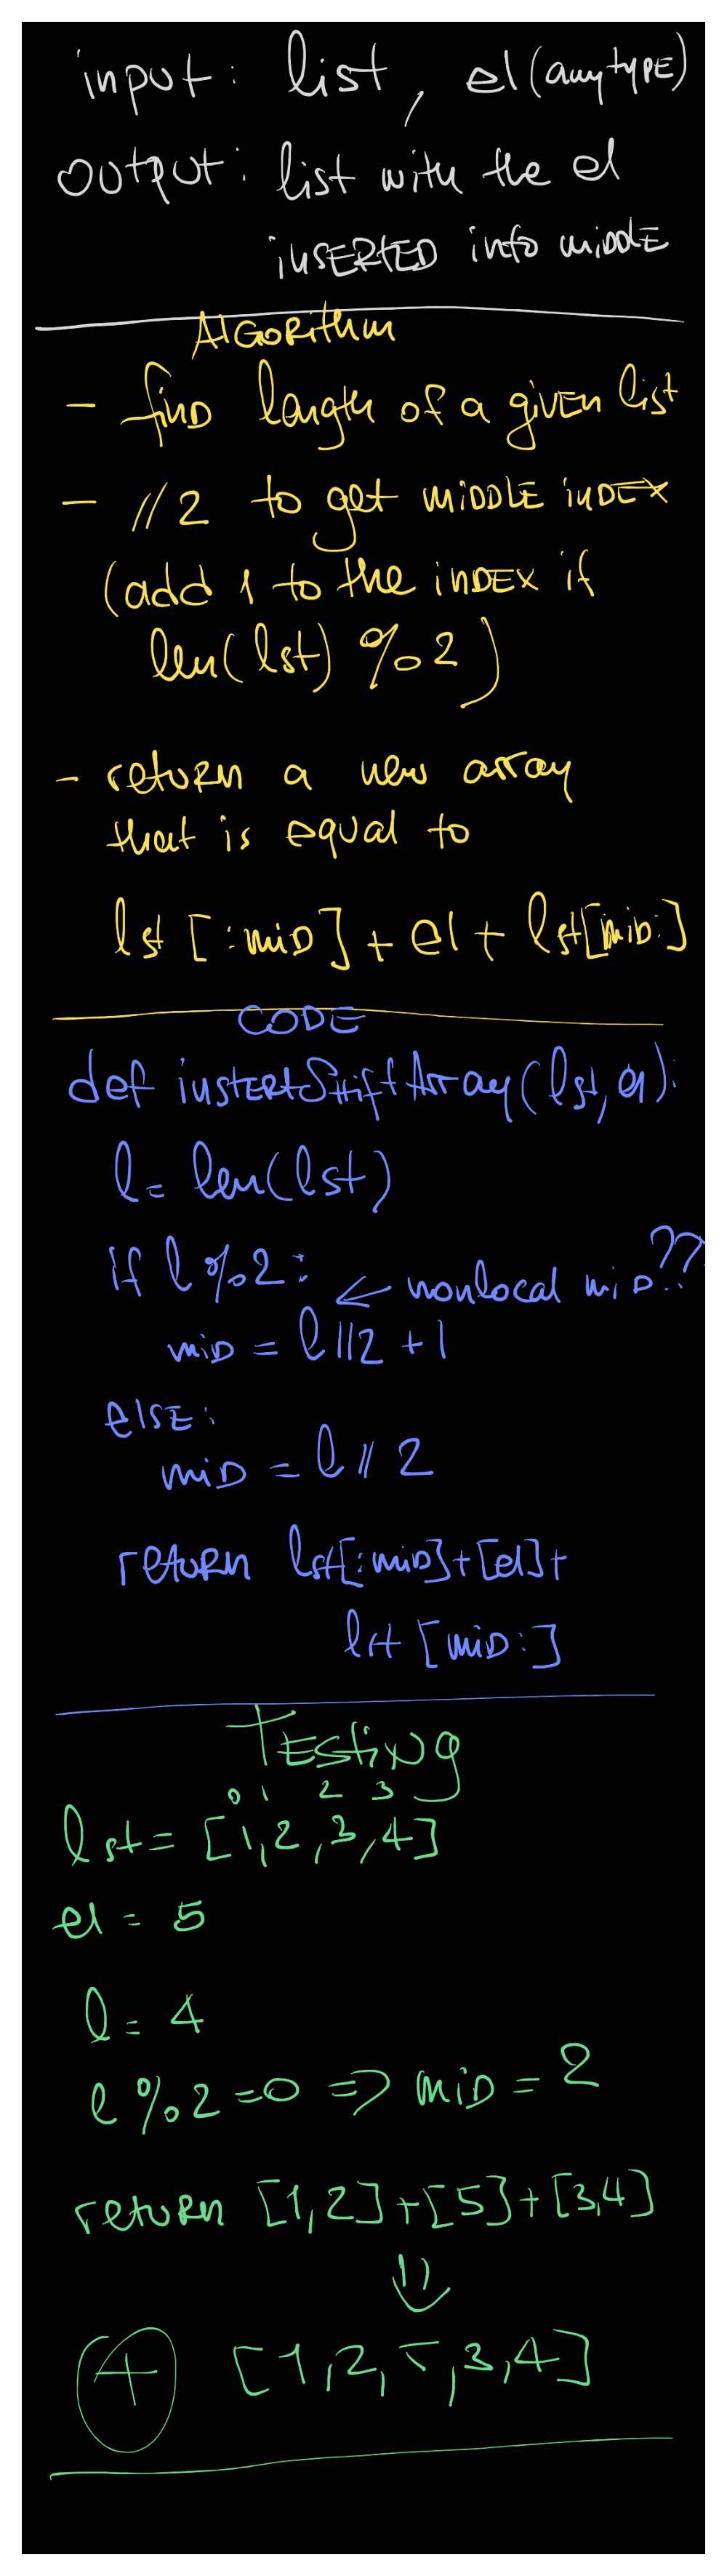 input: list, el (any type)
output: list with the el
inserted into middle
Algorithm
- find length of a given list
- //2 to get middle index
(add 1 to the index if
len(lst) %2)
- return a new array
that is equal to
lst [:mid] + el + lst[mid:]
CODE
def instertShiftArray(lst, el):
l = len(lst)
if l %2: ← nonlocal mid??
mid = l//2 + 1
else:
mid = l // 2
return lst[:mid] + [el] +
lst [mid:]
Testing
0 1 2 3
lst = [1,2,3,4]
el = 5
l = 4
l %2=0 => mid = 2
return [1,2]+[5]+[3,4]
⇓
+ [1,2,5,3,4]